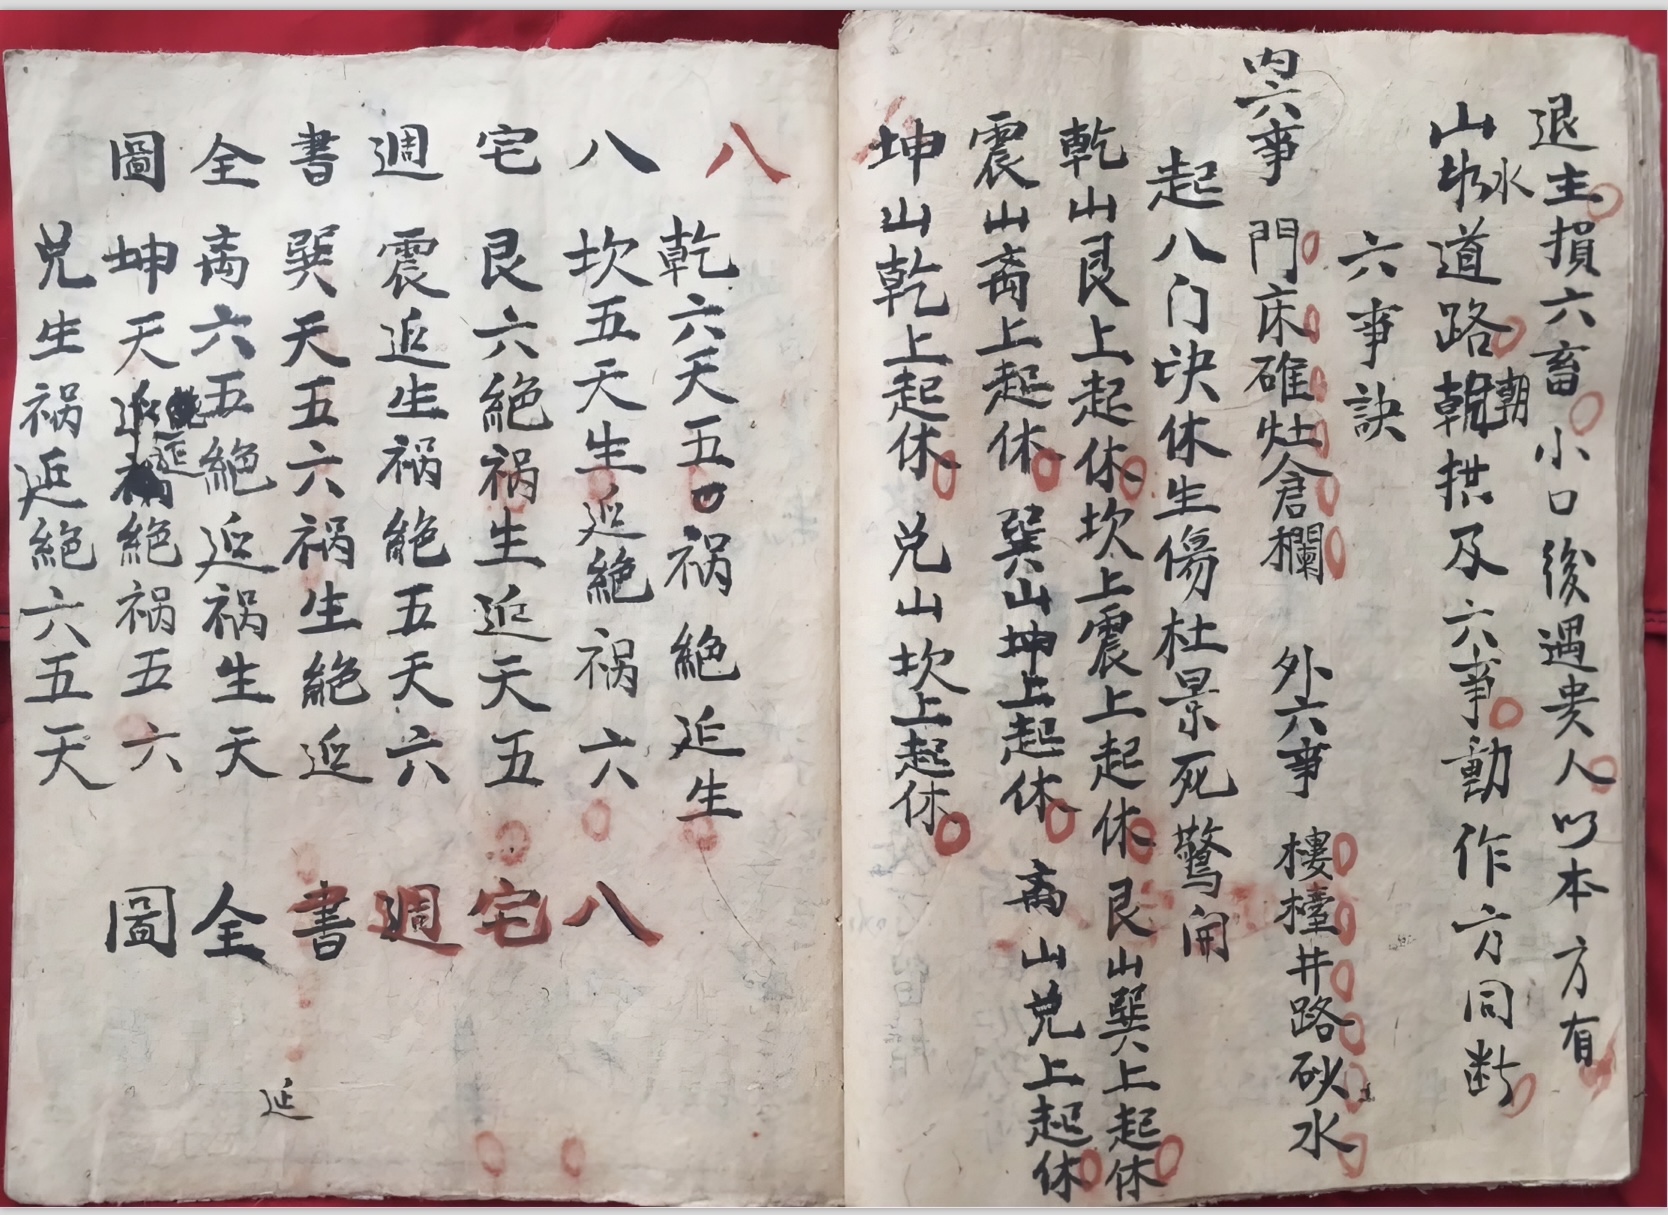 退主損六畜小口後遇贵人以本方有
山水道路朝拱及六事動作方同断
朝
六事訣
内六事 門床碓灶倉欄 外六事 樓檯井路砂水
起八门决休生傷杜景死驚開
乾山艮上起休坎上震上起休艮山巽上起休
震山离上起休巽山坤上起休离山兑上起休
坤山乾上起休兑山坎上起休
八
乾六天五祸絕延生
八 坎五天生延絕祸六 八
宅 艮六絕祸生延天五 宅
週 震延生祸絕五天六 週
書 巽天五六祸生絕延 書
全 离六五絕延祸生天 全
圖 坤天延絕祸五六 圖
兑生祸延絕六五天
延